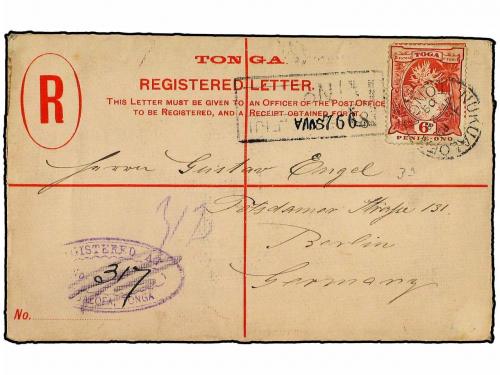 TONGA.
REGISTERED LETTER.
THIS LETTER MUST BE GIVEN TO AN OFFICER OF THE POST OFFICE
TO BE REGISTERED, AND A RECEIPT OBTAINED FOR IT.
R
TOGA
6D
PENI E ONO
NUKUALOFA
Herrn Gustav Engel
Potsdamer Straße 131.
Berlin
Germany
REGISTERED
317
TONGA
No.